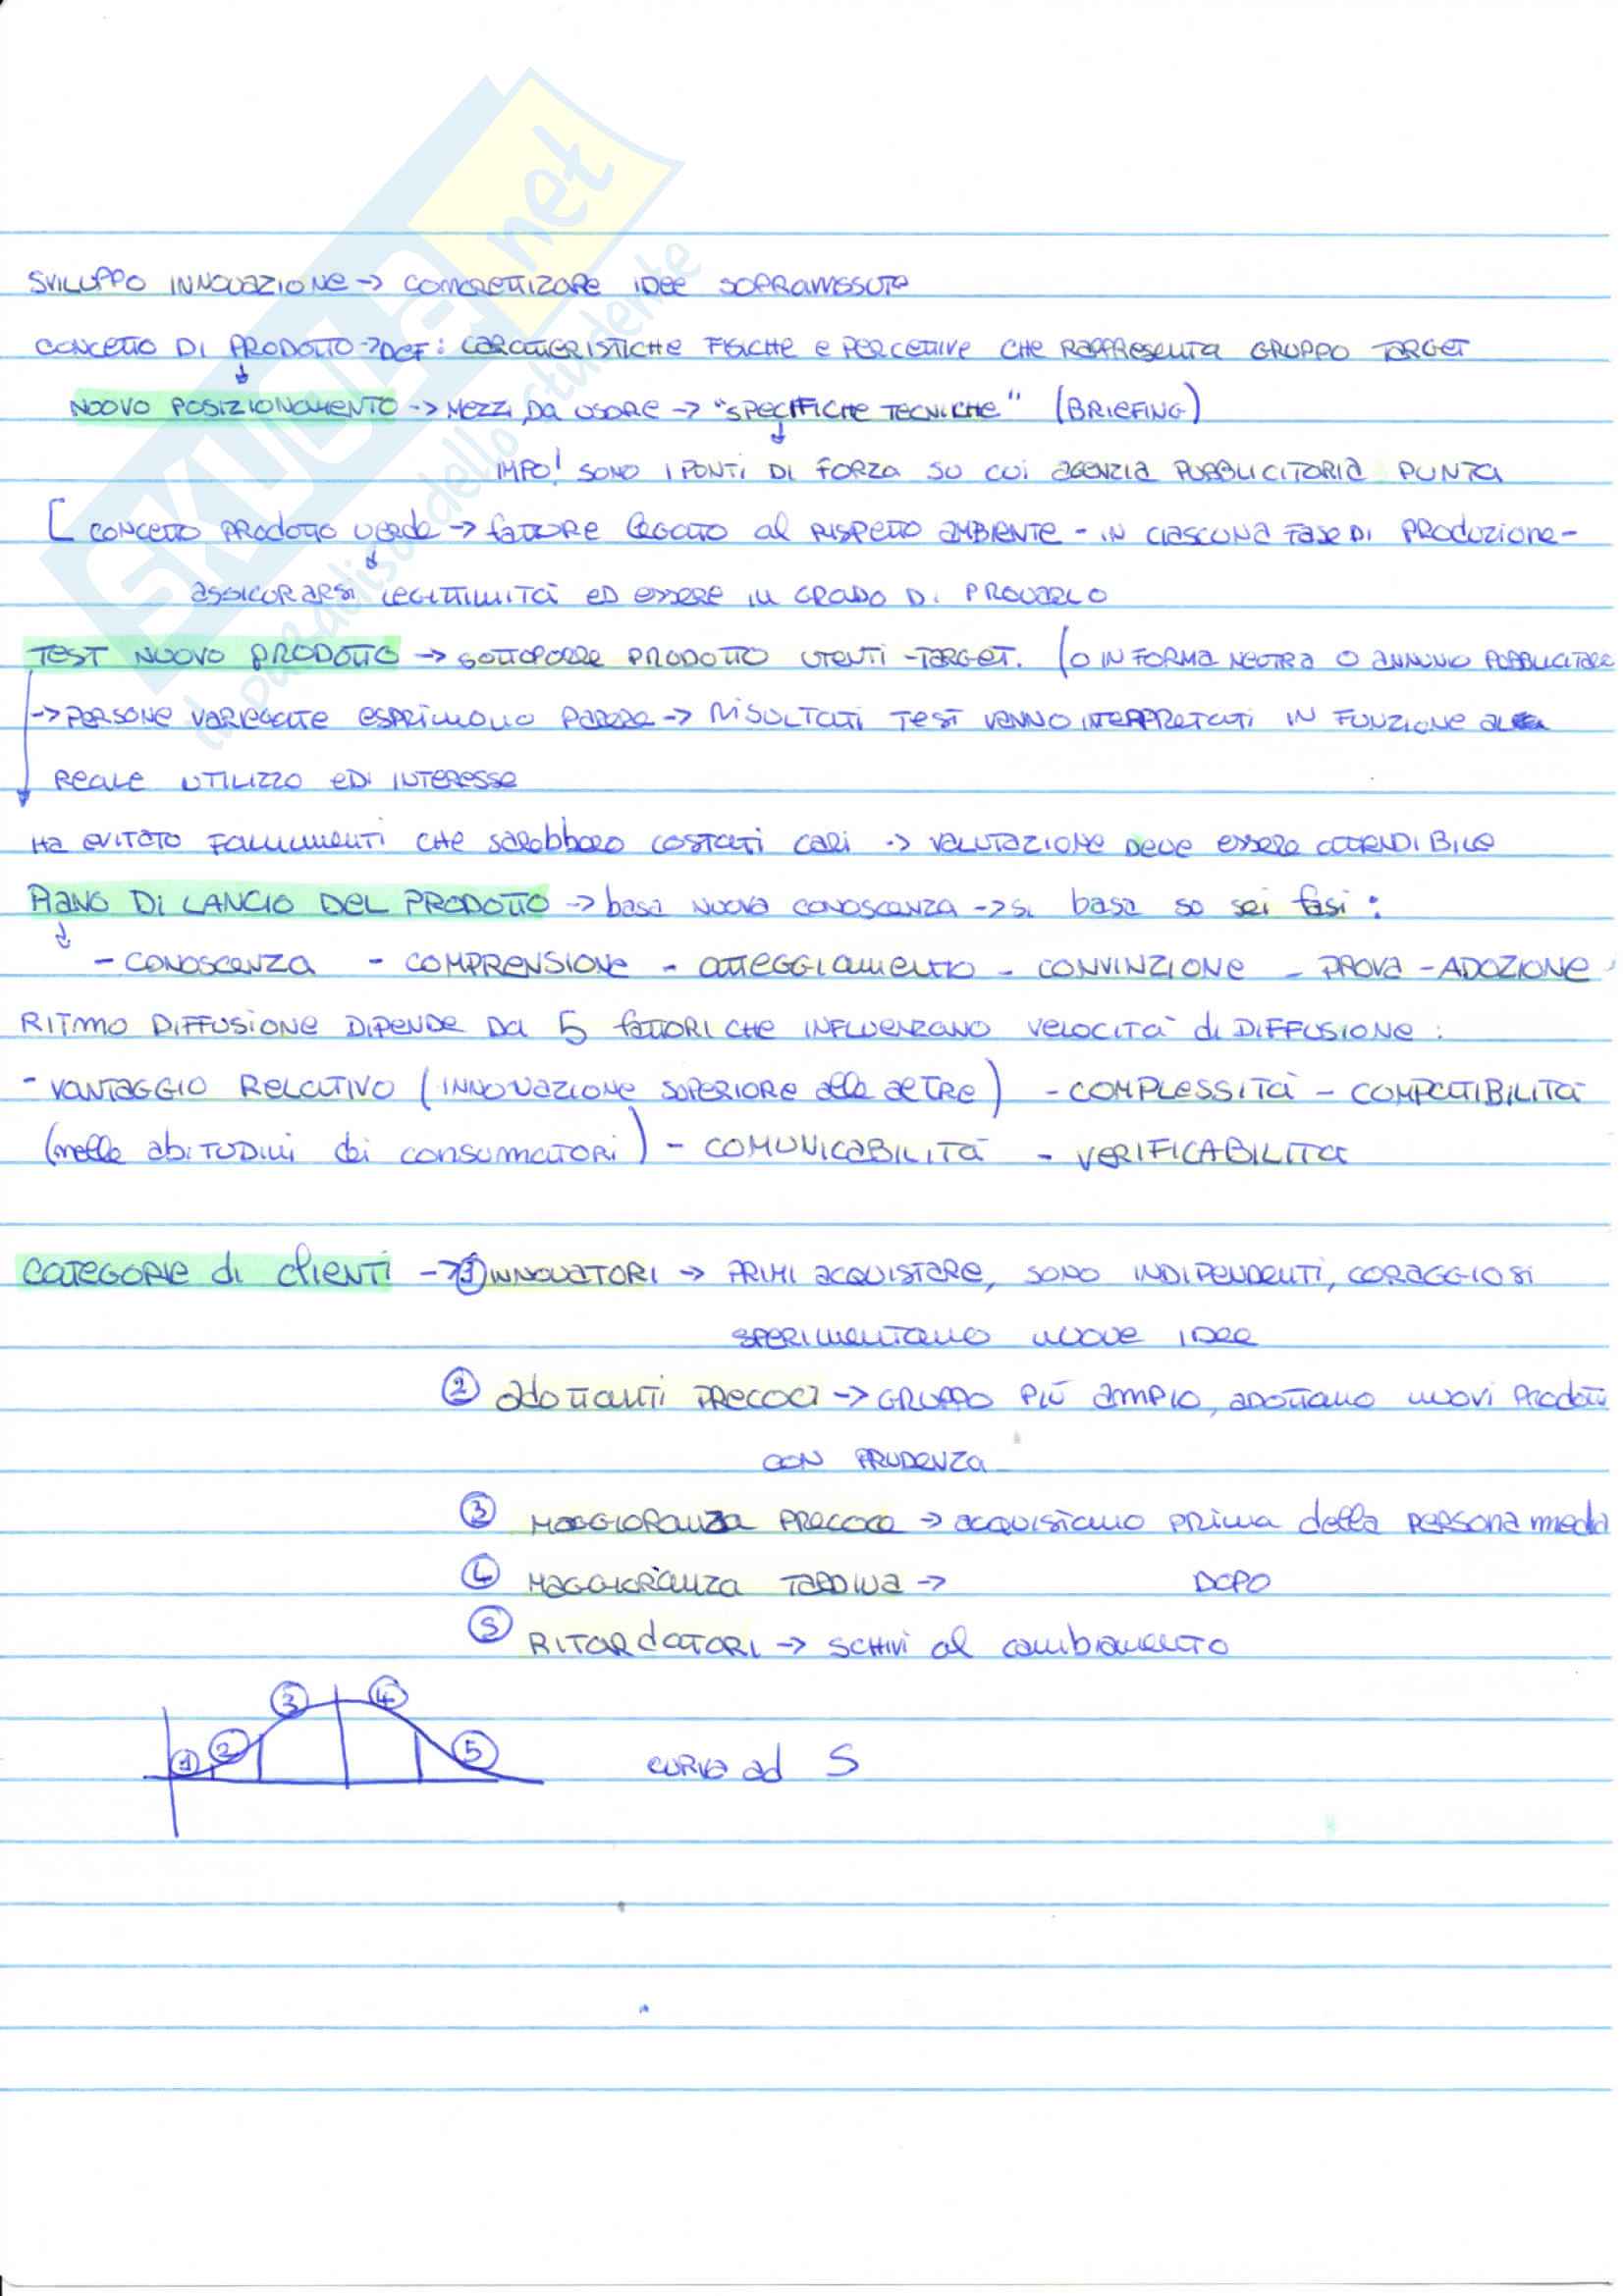 SKUOLA.net
il paradiso dello studente
SVILUPPO INNOVAZIONE → CONCRETTIZARE IDEE SOPRAVVISSUTE
CONCETTO DI PRODOTTO → DEF: CARATTERISTICHE FISICHE E PERCETTIVE CHE RAPPRESENTA GRUPPO TARGET
↓
NUOVO POSIZIONAMENTO → MEZZI DA USARE → "SPECIFICHE TECNICHE" (BRIEFING)
↓
IMPO! SONO I PUNTI DI FORZA SU CUI AGENZIA PUBBLICITARIA PUNTA
[ CONCETTO PRODOTTO VERDE → fattore legato al RISPETTO AMBIENTE - IN CIASCUNA FASE DI PRODUZIONE -
↓
ASSICURARSI LEGITTIMITÀ ED ESSERE IN GRADO DI PROVARLO
TEST NUOVO PRODOTTO → SOTTOPORRE PRODOTTO UTENTI-TARGET. (O IN FORMA NEUTRA O ANNUNIO PUBBLICITARIO
→ PERSONE VARIEGATE ESPRIMONO PARERE → RISULTATI TEST VANNO INTERPRETATI IN FUNZIONE
REALE UTILIZZO E DI INTERESSE
HA EVITATO FALLIMENTI CHE SAREBBERO COSTATI CARI → VALUTAZIONE DEVE ESSERE ATTENDIBILE
PIANO DI LANCIO DEL PRODOTTO → basa NUOVA CONOSCENZA → SI basa su sei fasi:
↓
- CONOSCENZA - COMPRENSIONE - ATTEGGIAMENTO - CONVINZIONE - PROVA - ADOZIONE
RITMO DIFFUSIONE DIPENDE DA 5 fattori CHE INFLUENZANO VELOCITÀ di DIFFUSIONE:
- VANTAGGIO RELATIVO (INNOVAZIONE SUPERIORE alle ALTRE) - COMPLESSITÀ - COMPATIBILITÀ
(nelle abitudini dei consumatori) - COMUNICABILITÀ - VERIFICABILITÀ
CATEGORIE di CLIENTI → ① INNOVATORI → PRIMI ACQUISTARE, SONO INDIPENDENTI, CORAGGIOSI
SPERIMENTANO NUOVE IDEE
② adottanti PRECOCI → GRUPPO PIÙ AMPIO, ADOTTANO NUOVI Prodotti
CON PRUDENZA
③ MAGGIORANZA PRECOCE → acquistano prima della PERSONA media
④ MAGGIORANZA TARDIVA → DOPO
⑤ RITARDATORI → SCHIVI al cambiamento
① ② ③ ④ ⑤
CURVA ad S